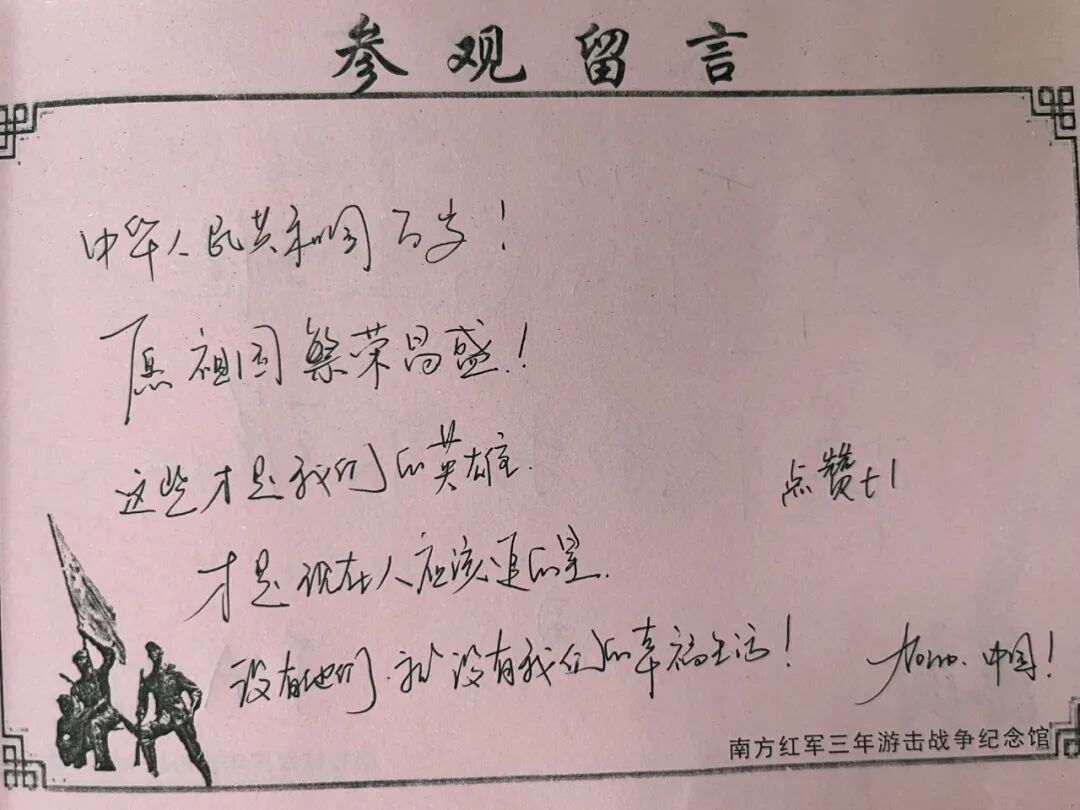 参观留言
中华人民共和国万岁！
愿祖国繁荣昌盛！
这些才是我们的英雄.
点赞+1
才是现在人应该追的星.
没有他们.就没有我们的幸福生活！
中国！
南方红军三年游击战争纪念馆